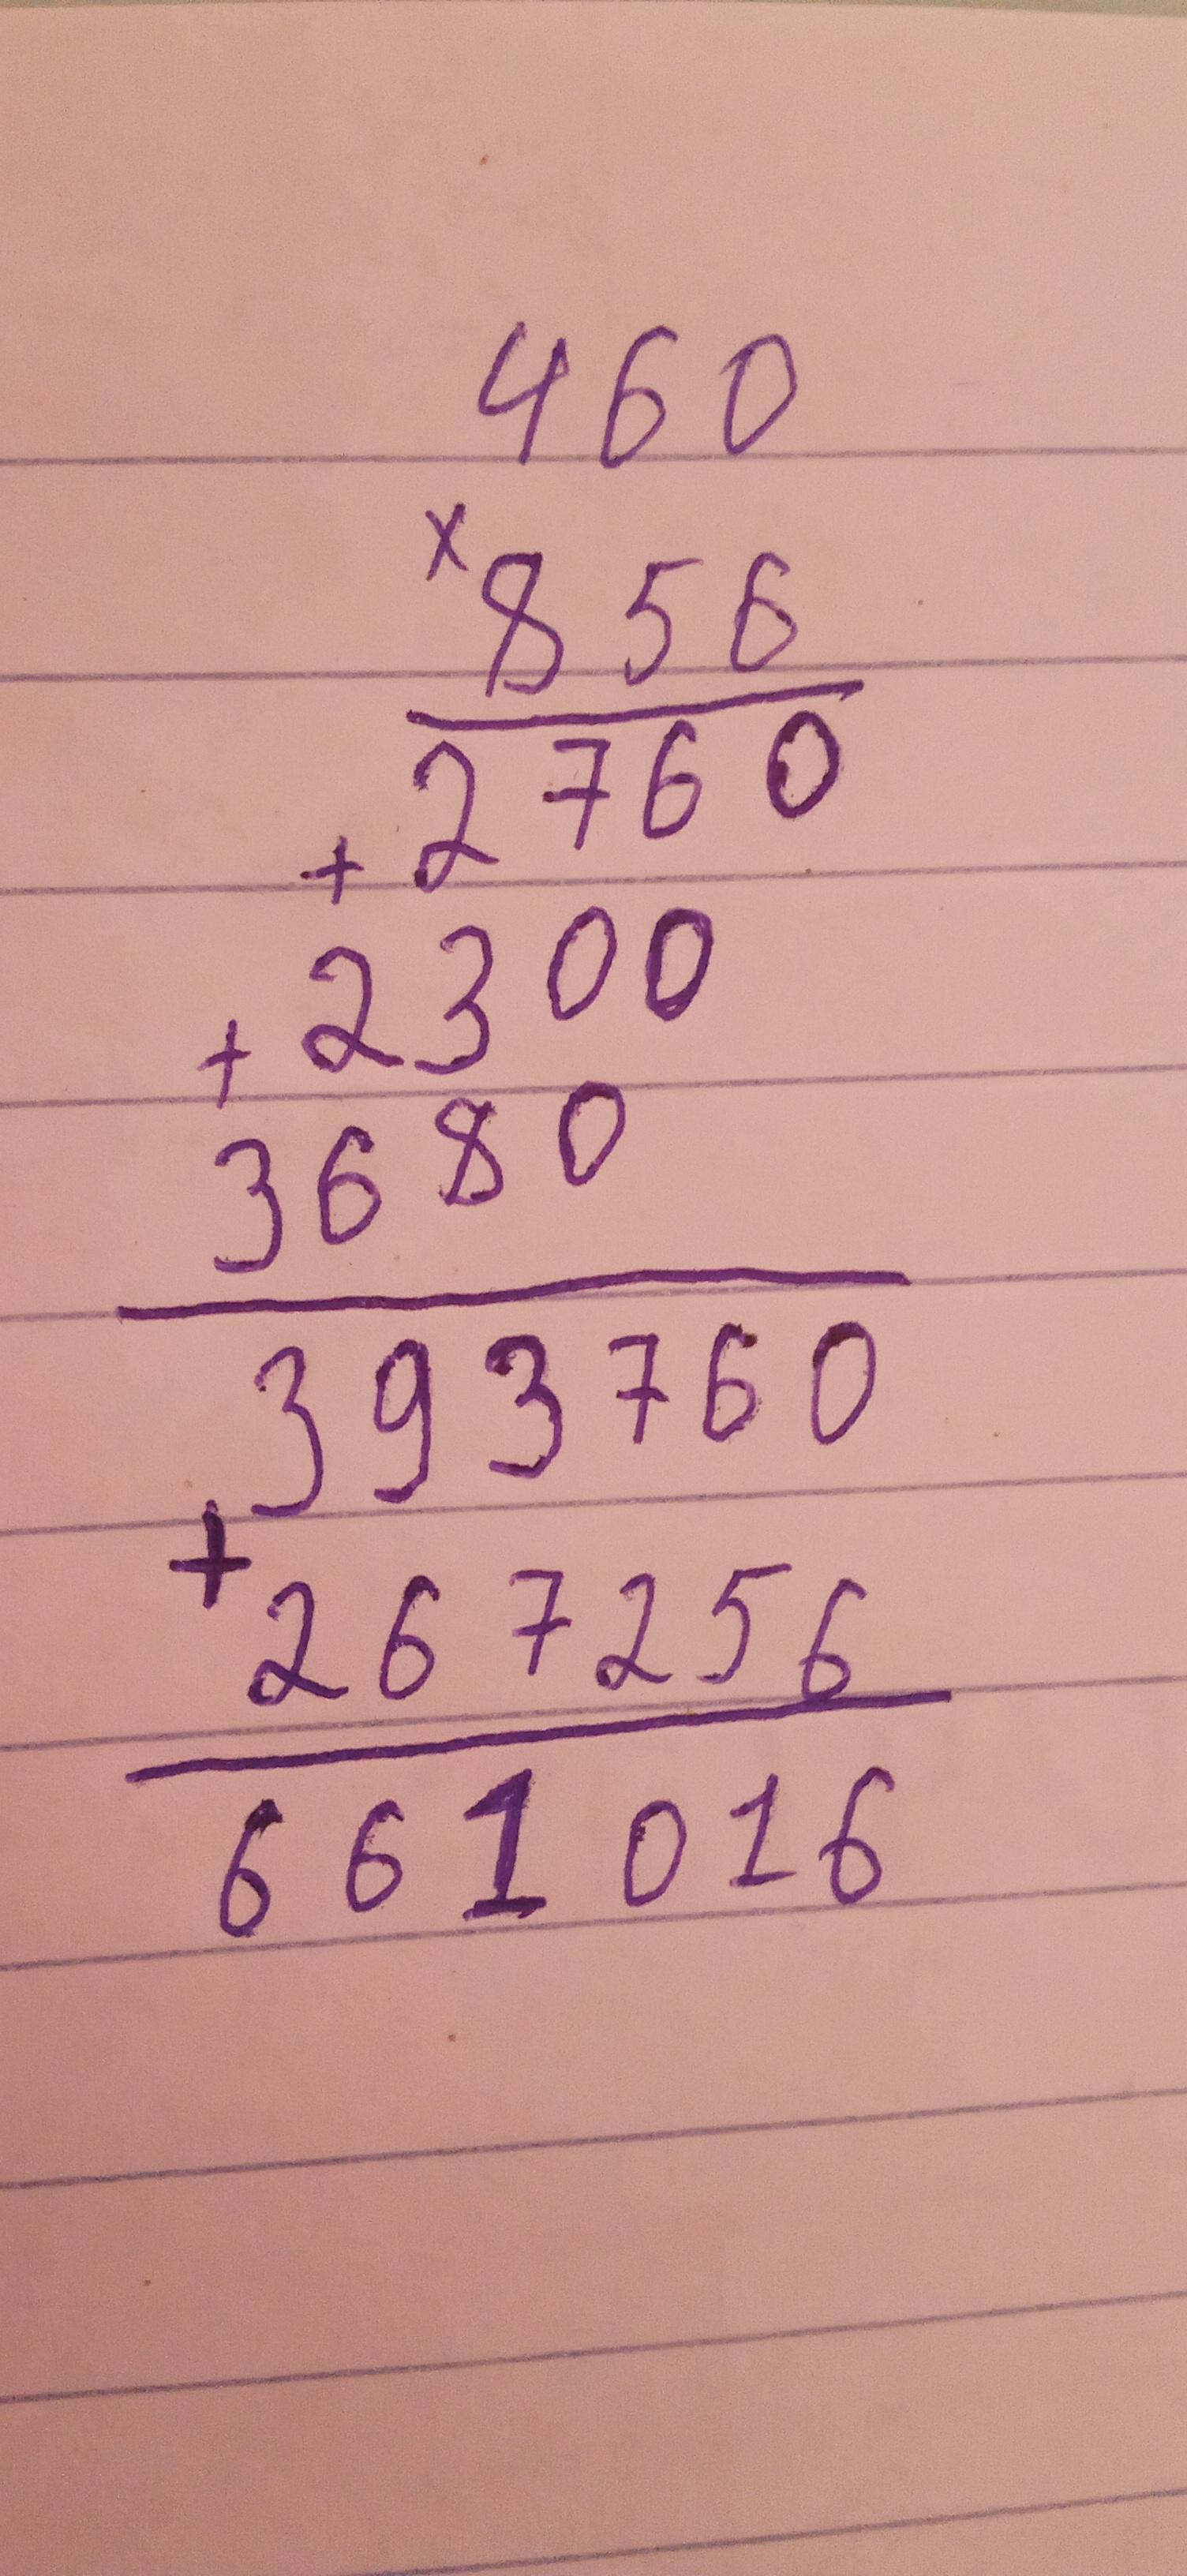 460
×
856
2760
+
2300
+
3680
393760
+
267256
661016